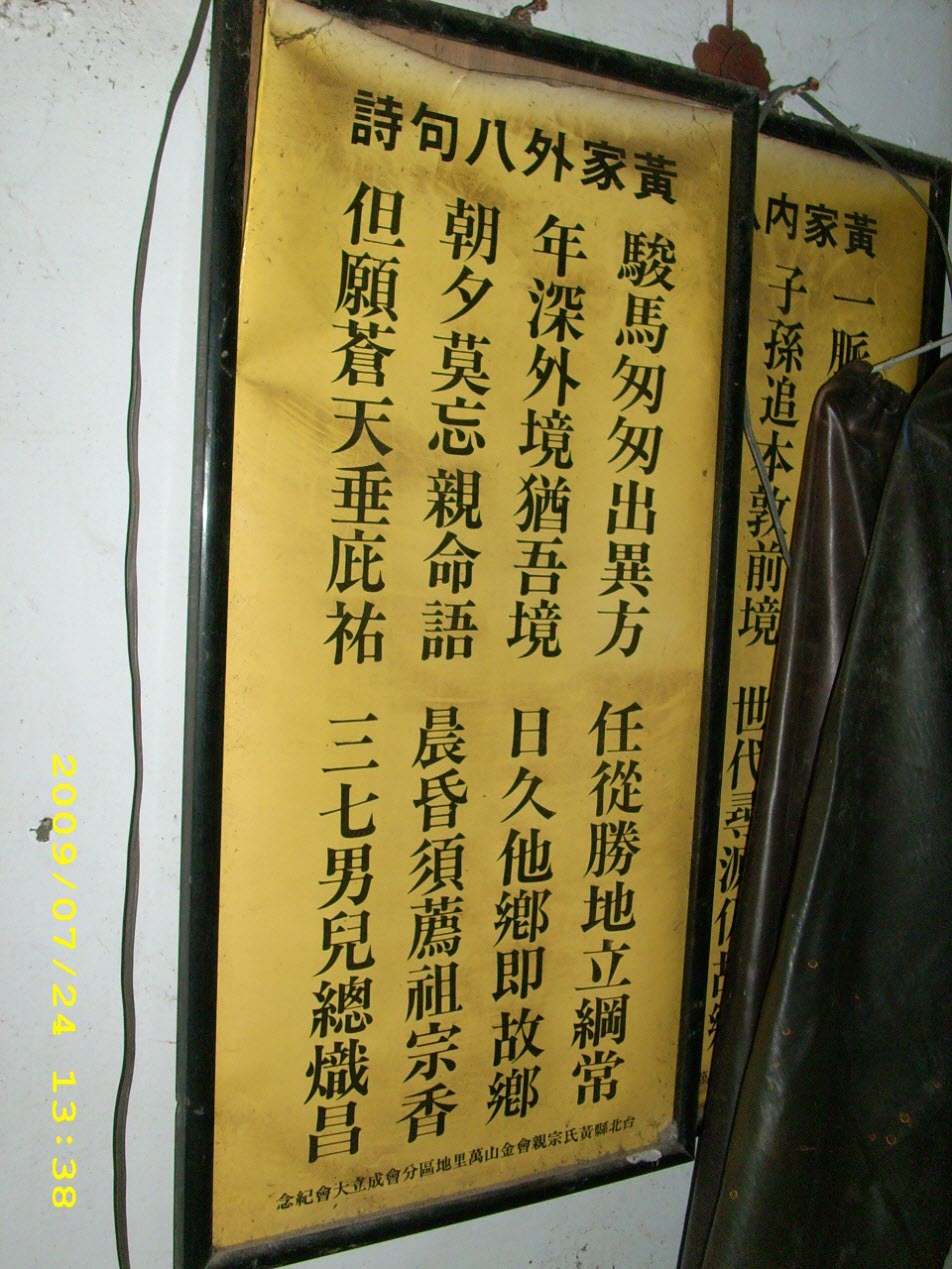 黃家外八句詩
駿馬匆匆出異方 任從勝地立綱常
年深外境猶吾境 日久他鄉即故鄉
朝夕莫忘親命語 晨昏須薦祖宗香
但願蒼天垂庇祐 三七男兒總熾昌
台北縣黃氏宗親會金山萬里地區分會成立大會紀念
黃家內
一脈
子孫追本敦前境 世代尋派
2009/07/24 13:38